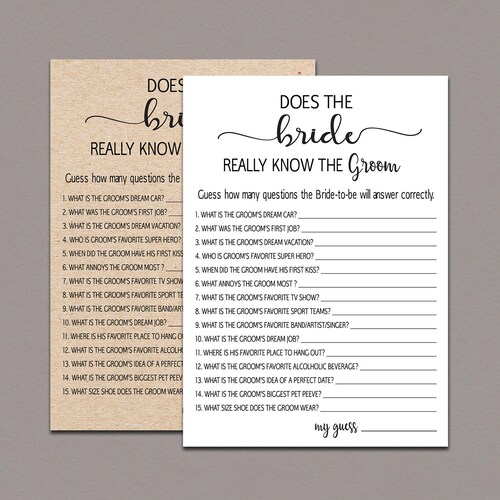 DOES THE
bri
REALLY KNOW
Guess how many questions the
1. WHAT IS THE GROOM'S DREAM CAR?
2. WHAT WAS THE GROOM'S FIRST JOB?
3. WHAT IS THE GROOM'S DREAM VACATION?
4. WHO IS GROOM'S FAVORITE SUPER HERO?
5. WHEN DID THE GROOM HAVE HIS FIRST KISS
6. WHAT ANNOYS THE GROOM MOST ?
7. WHAT IS THE GROOM'S FAVORITE TV SHOW
8. WHAT IS THE GROOM'S FAVORITE SPORT TEM
9. WHAT IS THE GROOM'S FAVORITE BAND/ART
10. WHAT IS THE GROOM'S DREAM JOB?
11. WHERE IS HIS FAVORITE PLACE TO HANG OU
12. WHAT IS THE GROOM'S FAVORITE ALCOHOL
13. WHAT IS THE GROOM'S IDEA OF A PERFECT
14. WHAT IS THE GROOM'S BIGGEST PET PEEVE
15. WHAT SIZE SHOE DOES THE GROOM WEAR
DOES THE
bride
REALLY KNOW THE Groom
Guess how many questions the Bride-to-be will answer correctly.
1. WHAT IS THE GROOM'S DREAM CAR?
2. WHAT WAS THE GROOM'S FIRST JOB?
3. WHAT IS THE GROOM'S DREAM VACATION?
4. WHO IS GROOM'S FAVORITE SUPER HERO?
5. WHEN DID THE GROOM HAVE HIS FIRST KISS?
6. WHAT ANNOYS THE GROOM MOST ?
7. WHAT IS THE GROOM'S FAVORITE TV SHOW?
8. WHAT IS THE GROOM'S FAVORITE SPORT TEAMS?
9. WHAT IS THE GROOM'S FAVORITE BAND/ARTIST/SINGER?
10. WHAT IS THE GROOM'S DREAM JOB?
11. WHERE IS HIS FAVORITE PLACE TO HANG OUT?
12. WHAT IS THE GROOM'S FAVORITE ALCOLHOLIC BEVERAGE?
13. WHAT IS THE GROOM'S IDEA OF A PERFECT DATE?
14. WHAT IS THE GROOM'S BIGGEST PET PEEVE?
15. WHAT SIZE SHOE DOES THE GROOM WEAR?
my guess